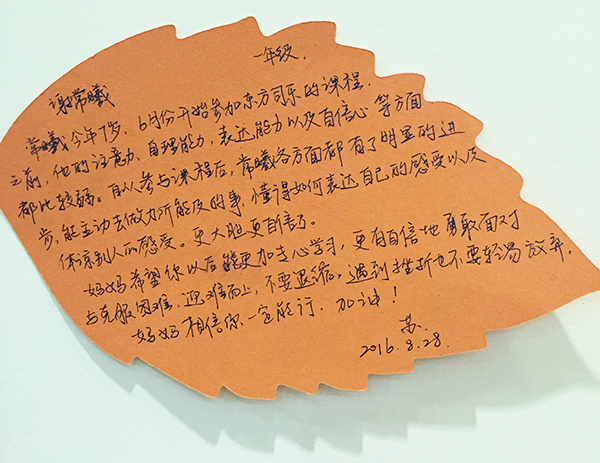 一年级.
谢常曦
常曦今年7岁. 6月份开始参加东方司乐的课程.
之前, 他的注意力、自理能力, 表达能力以及自信心 等方面
都比较弱。自从参与课程后, 常曦各方面都有了明显的进
步, 能主动去做力所能及的事. 懂得如何表达自己的感受以及
体谅别人的感受。更大胆更自信了。
妈妈希望你以后能更加专心学习, 更自自信地勇敢面对
与克服困难, 迎难而上, 不要退缩, 遇到挫折也不要轻易放弃.
妈妈相信你一定能行. 加油!
苏.
2016.8.28.